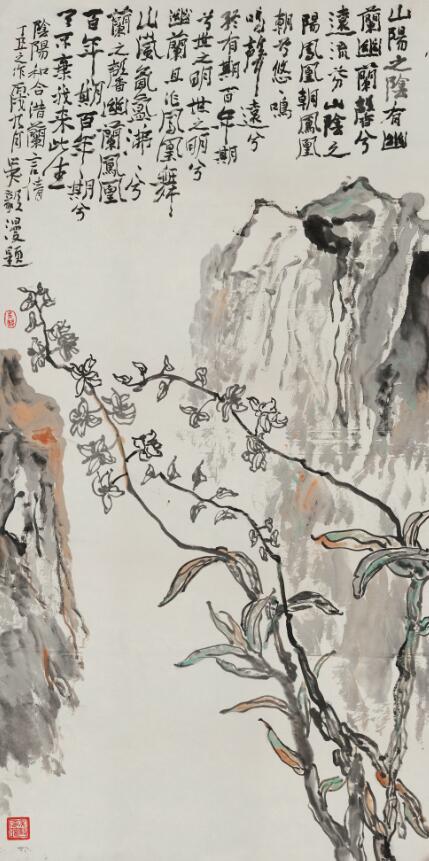 山陽之陰有幽
蘭幽蘭馨兮
遠流芳山陰之
陽鳳凰朝鳳凰
朝兮悠鳴
鳴韾遠兮
終有期百年期
兮世之明世之明兮
幽蘭且作鳳凰舞
山嵐氤氳沸兮
蘭之馨幽蘭鳳凰
百年期百年期兮
了不棄我來此生
陰陽和合借蘭言情
丁丑之作丙戌九月
吳毅漫題